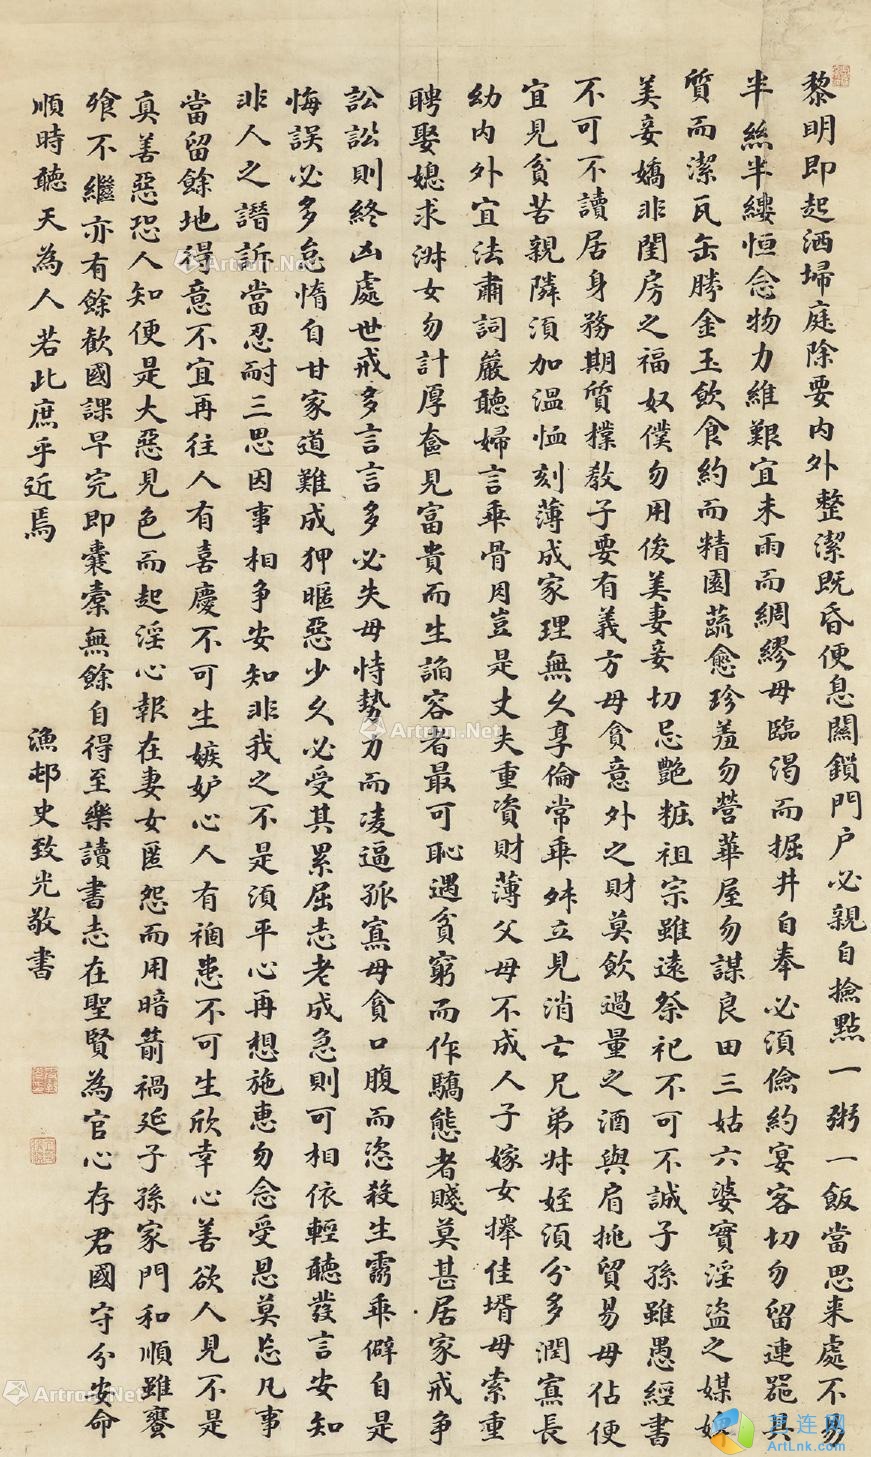 黎明即起洒埽庭除要内外整潔既昏便息關鎖門户必親自撿點一粥一飯當思来處不易
半絲半縷恒念物力維艱宜未雨而綢繆毋臨渴而掘井自奉必須儉約宴客切勿留連噐具
質而潔瓦缶勝金玉飲食約而精園蔬愈珍羞勿營華屋勿謀良田三姑六婆實淫盗之媒婢
美妾嬌非閨房之福奴僕勿用俊美妻妾切忌艷粧祖宗雖遠祭祀不可不誠子孫雖愚經書
不可不讀居身務期質樸教子要有義方毋貪意外之財莫飲過量之酒與肩挑貿易毋佔便
宜見貧苦親隣須加温恤刻薄成家理無久享倫常乖舛立見消亡兄弟叔姪須分多潤寡長
幼内外宜法肅詞嚴聽婦言乖骨肉豈是丈夫重資財薄父母不成人子嫁女擇佳壻毋索重
聘娶媳求淑女勿計厚奩見富貴而生諂容者最可恥遇貧窮而作驕態者賤莫甚居家戒争
訟訟則終凶處世戒多言言多必失毋恃勢力而凌逼孤寡毋貪口腹而恣殺生禽乖僻自是
悔誤必多怠惰自甘家道難成狎暱惡少久必受其累屈志老成急則可相依輕聽發言安知
非人之譖訴當忍耐三思因事相争安知非我之不是須平心再想施惠勿念受恩莫忘凡事
當留餘地得意不宜再往人有喜慶不可生嫉妒心人有禍患不可生欣幸心善欲人見不是
真善惡恐人知便是大惡見色而起淫心報在妻女匿怨而用暗箭禍延子孫家門和順雖饔
飧不繼亦有餘歡國課早完即囊橐無餘自得至樂讀書志在聖賢為官心存君國守分安命
順時聽天為人若此庶乎近焉
漁邨史致光敬書
Artron.Net
Artron.Net
Artron.Net
Artron.Net
艺连网
ArtLnk.com